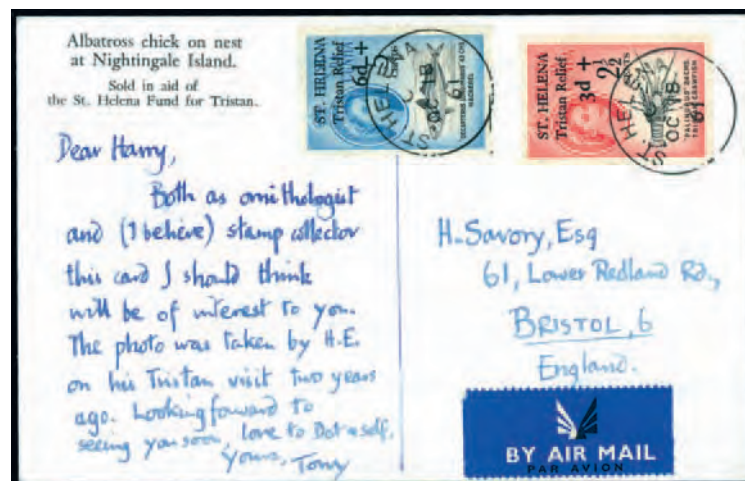 Albatross chick on nest
at Nightingale Island.
Sold in aid of
the St. Helena Fund for Tristan.
ST. HELENA
Tristan Relief
6d +
ST. HELENA
Tristan Relief
3d + 2½
CTS
ST. HELENA
OC 18
61
ST. HELENA
OC 18
61
Dear Harry,
Both as ornithologist
and (I believe) stamp collector
this card I should think
will be of interest to you.
The photo was taken by H.E.
on his Tristan visit two years
ago. Looking forward to
seeing you soon, love to Dot & self,
Yours, Tony
H. Savory, Esq
61, Lower Redland Rd.,
BRISTOL, 6
England.
BY AIR MAIL
PAR AVION